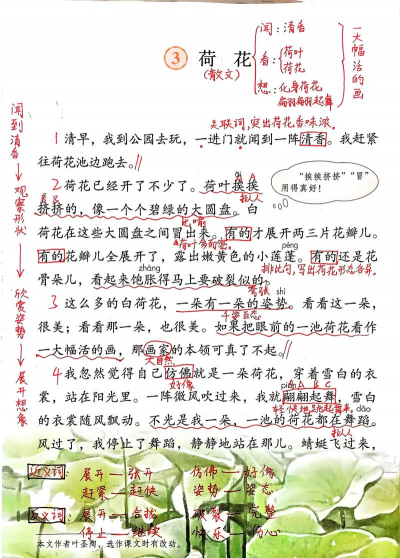 闻：清香
3 荷花
看：荷叶
荷花
(散文)
想：化身荷花
翩翩起舞
一大幅活的画
关联词，突出荷花香味浓。
闻到清香→观察形状→欣赏姿势→展开想象
1清早，我到公园去玩，一进门就闻到一阵清香。我赶紧
往荷花池边跑去。
“挨挨挤挤”“冒”
用得真好！
āi
A A
2荷花已经开了不少了。荷叶挨挨
拟人
B B
挤挤的，像一个个碧绿的大圆盘。白
比喻
荷花在这些大圆盘之间冒出来。有的才展开两三片花瓣儿。
荷叶多而密。
péng
有的花瓣儿全展开了，露出嫩黄色的小莲蓬。有的还是花
排比句，写出荷花形态各异。
zhàng
骨朵儿，看起来饱胀得马上要破裂似的。
shì
3这么多的白荷花，一朵有一朵的姿势。看看这一朵，
千姿百态
很美；看看那一朵，也很美。如果把眼前的一池荷花看作
一大幅活的画，那画家的本领可真了不起。
大自然
4我忽然觉得自己仿佛就是一朵荷花，穿着雪白的衣
好像
piān A B C
裳，站在阳光里。一阵微风吹过来，我就翩翩起舞，雪白
轻快地跳起舞来。
dǎo
的衣裳随风飘动。不光是我一朵，一池的荷花都在舞蹈。
拟人
风过了，我停止了舞蹈，静静地站在那儿。蜻蜓飞过来，
近义词：展开—张开 仿佛—好像
赶紧—赶快 姿势—姿态
反义词：展开—合拢 破裂—完整
停止—继续 快乐—伤心
本文作者叶圣陶，选作课文时有改动。